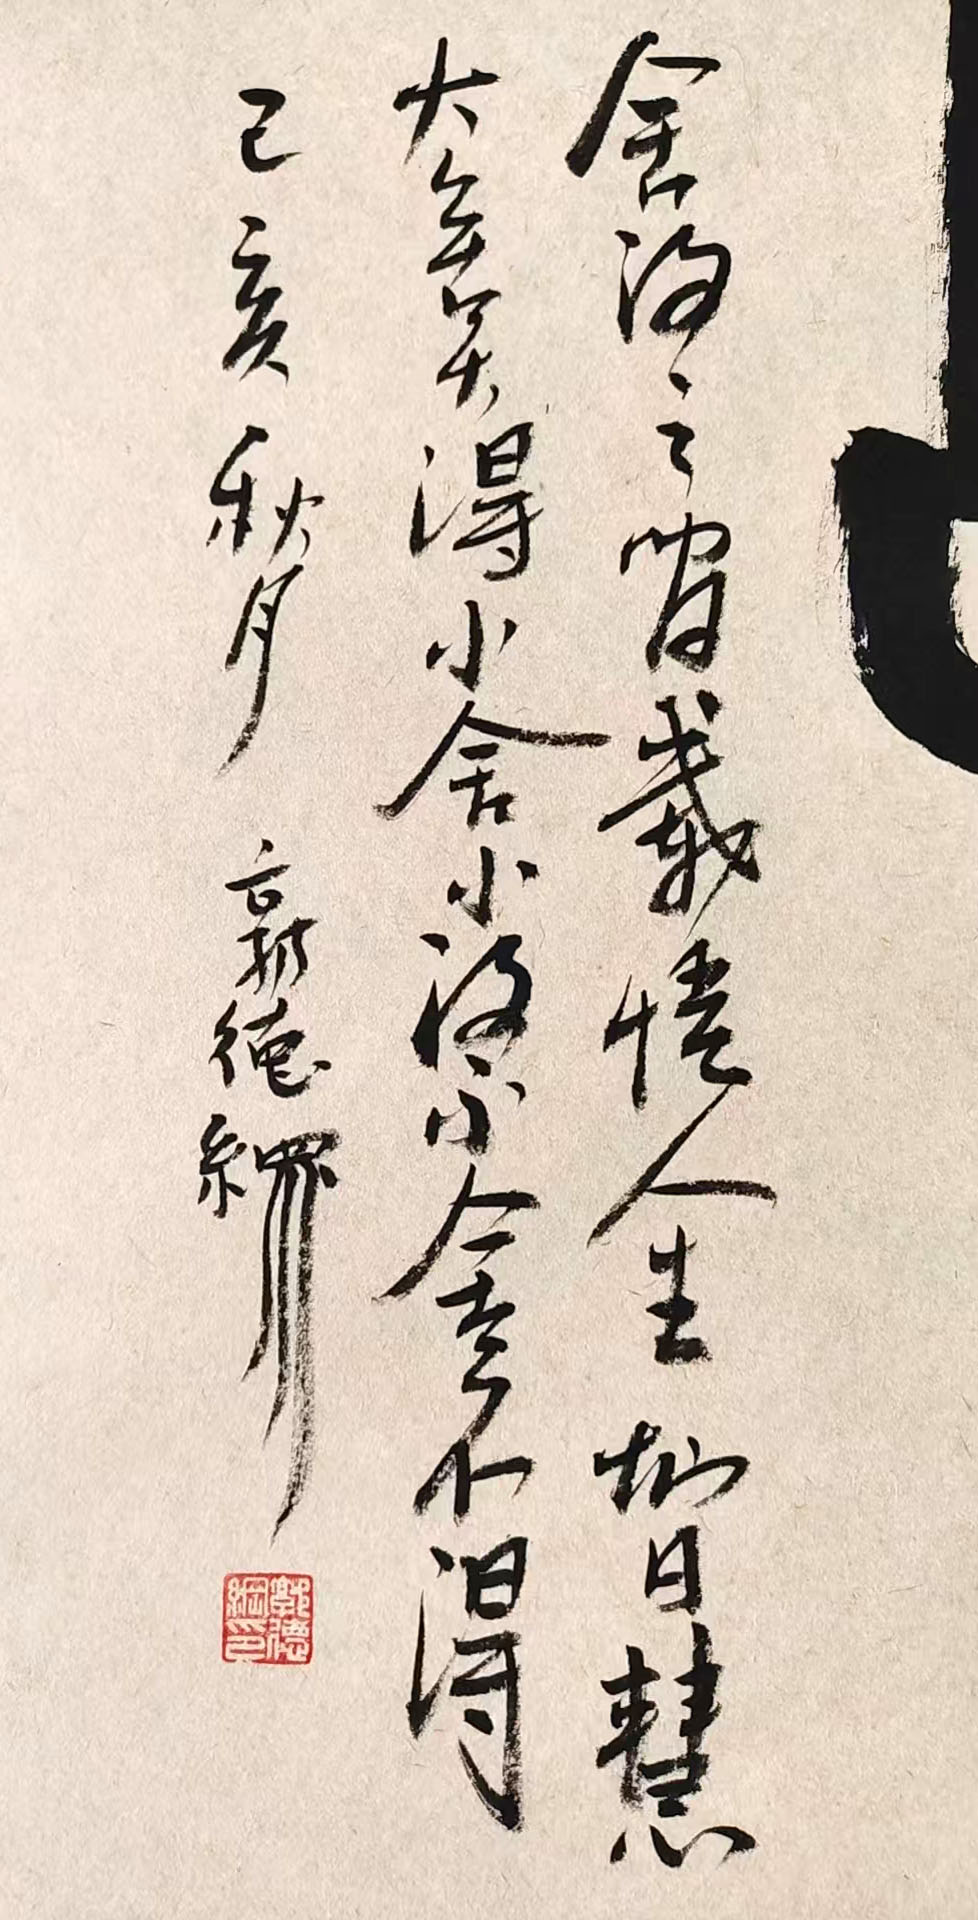 舍得之間載悟人生智慧
大舍大得小舍小得不舍不得
己亥秋月 郭德綱
郭德綱印